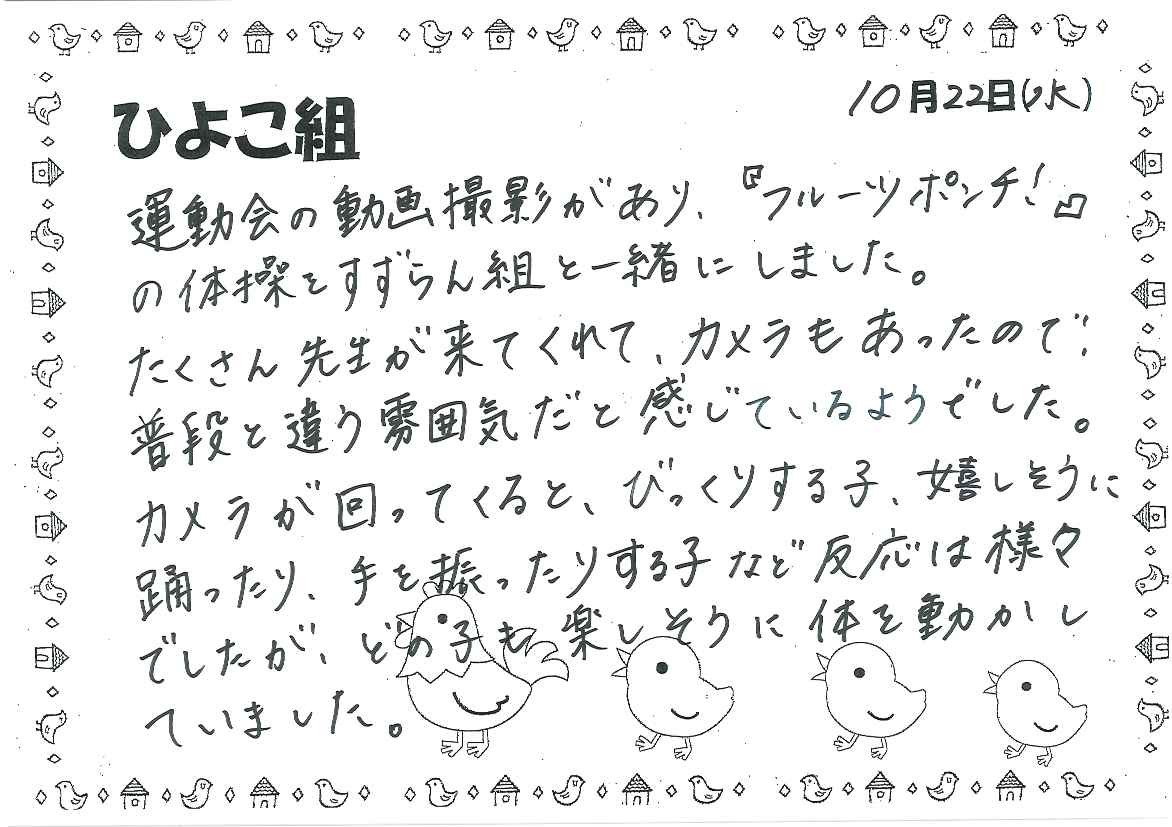 ひよこ組
10月22日(水)
運動会の動画撮影があり、『フルーツポンチ!』
の体操をすずらん組と一緒にしました。
たくさん先生が来てくれて、カメラもあったので、
普段と違う雰囲気だと感じているようでした。
カメラが回ってくると、びっくりする子、嬉しそうに
踊ったり、手を振ったりする子など反応は様々
でしたが、どの子も楽しそうに体を動かし
ていました。